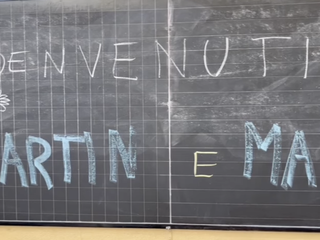 ENVENUTI
ARTIN E MA